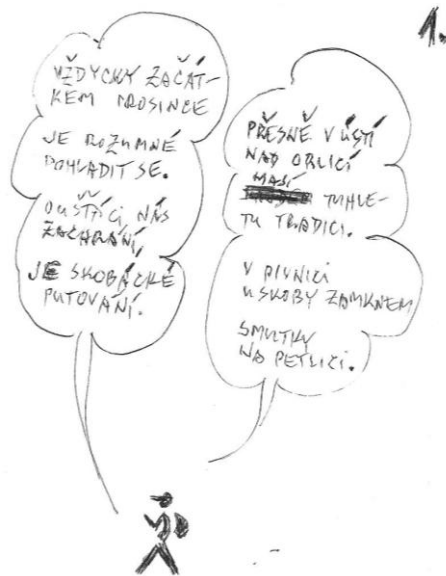 1.
VŽDYCKY ZAČÁT-
KEM PROSINCE
JE ROZUMNÉ
POHLADIT SE.
OUŠŤÁCI NÁS
ZACHRÁNÍ,
JE SKOBÁCKÉ
PUTOVÁNÍ.
PŘESNĚ V ÚSTÍ
NAD ORLICÍ
MAJÍ
TUHLE-
TU TRADICI.
V PIVNICI
U SKOBY ZAMKNEM
SMUTKY
NA PETLICI.